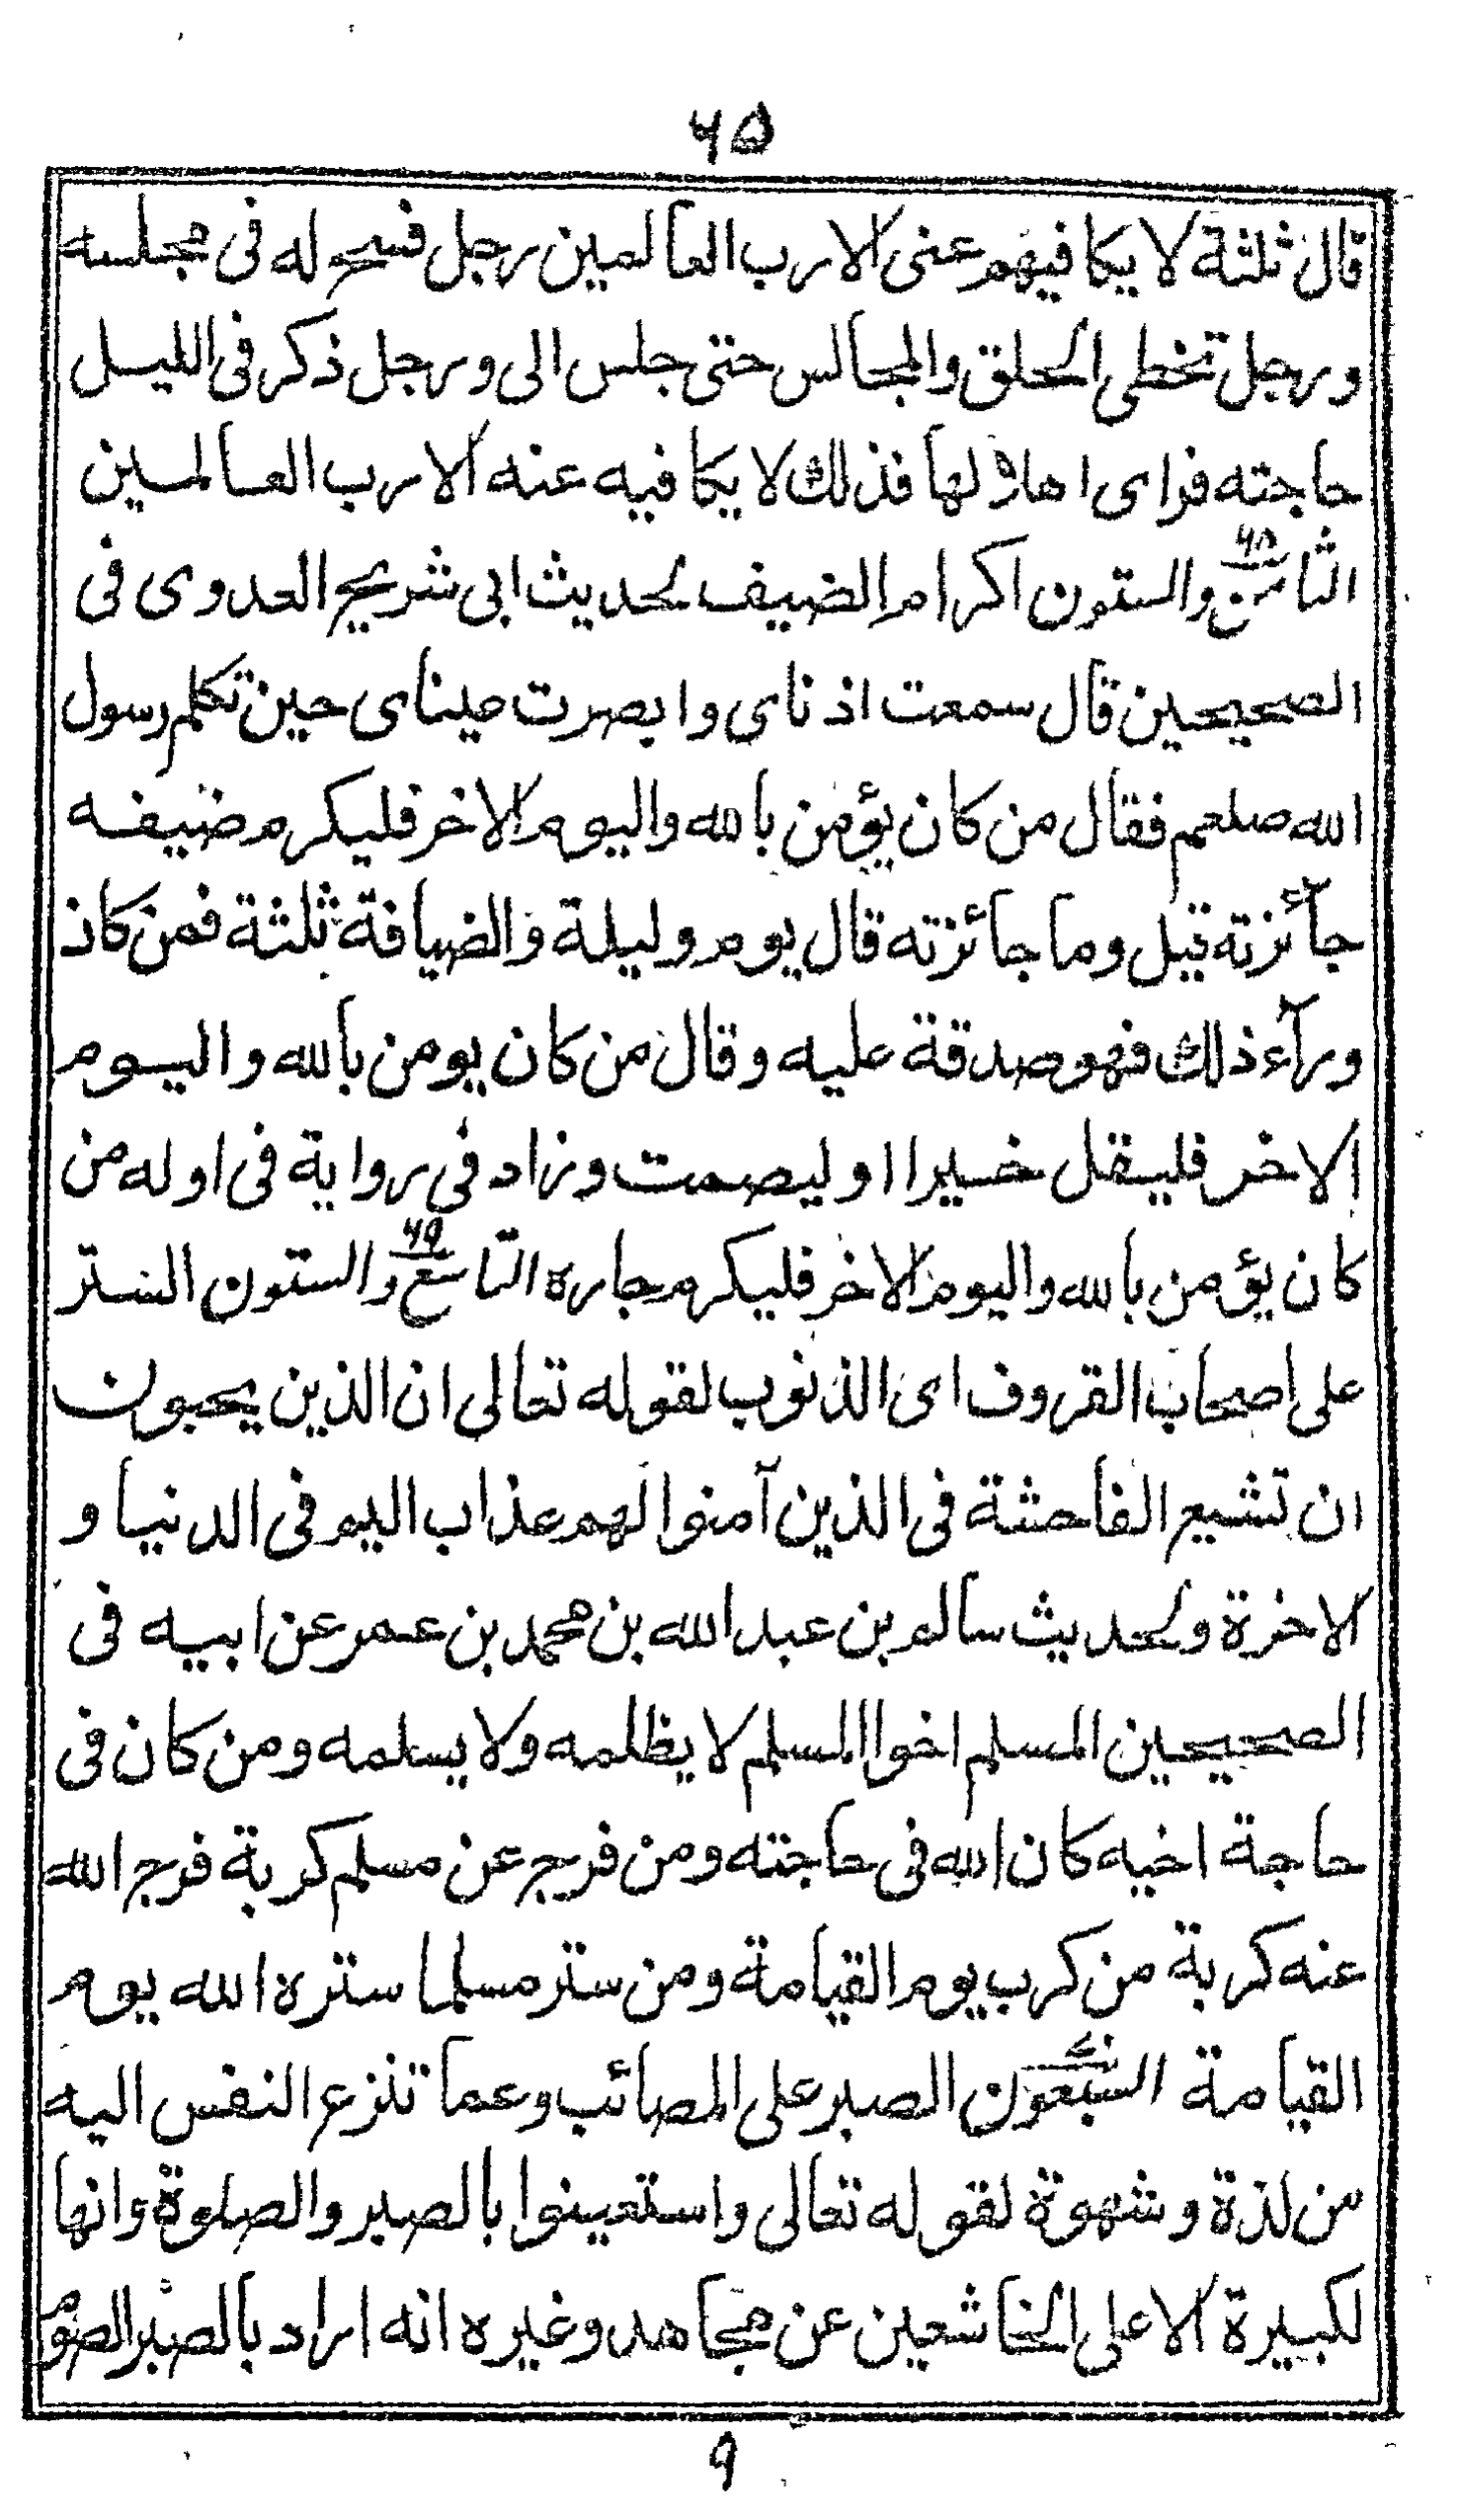 ٦٥
قال ثلثة لا يكافيهم عنى الا رب العالمين رجل فسح له فى مجلسه
ورجل تخطى الحلق والمجالس حتى جلس الى ورجل ذكر فى الليل
حاجته فراى اهلا لها فذلك لا يكافيه عنه الا رب العالمين
الثامن والستون اكرام الضيف لحديث ابى شريح العدوى فى
الصحيحين قال سمعت اذناى وابصرت عيناى حين تكلم رسول
الله صلعم فقال من كان يؤمن بالله واليوم الاخر فليكرم ضيفه
جآئزته قيل وما جائزته قال يوم وليلة والضيافة ثلثة فمن كان
ورآء ذلك فهو صدقة عليه وقال من كان يومن بالله واليوم
الاخر فليقل خيرا او ليصمت وزاد فى رواية فى اوله من
كان يؤمن بالله واليوم الاخر فليكرم جاره التاسع والستون الستر
على اصحاب القروف اى الذنوب لقوله تعالى ان الذين يحبون
ان تشيع الفاحشة فى الذين آمنوا لهم عذاب اليم فى الدنيا و
الاخرة ولحديث سالم بن عبد الله بن محمد بن عمر عن ابيه فى
الصحيحين المسلم اخوا المسلم لا يظلمه ولا يسلمه ومن كان فى
حاجة اخيه كان الله فى حاجته ومن فرج عن مسلم كربة فرج الله
عنه كربة من كرب يوم القيامة ومن ستر مسلما ستره الله يوم
القيامة السبعون الصبر على المصائب وعما تنزع النفس اليه
من لذة وشهوة لقوله تعالى واستعينوا بالصبر والصلوة وانها
لكبيرة الا على الخاشعين عن مجاهد وغيره انه اراد بالصبر الصوم
٩